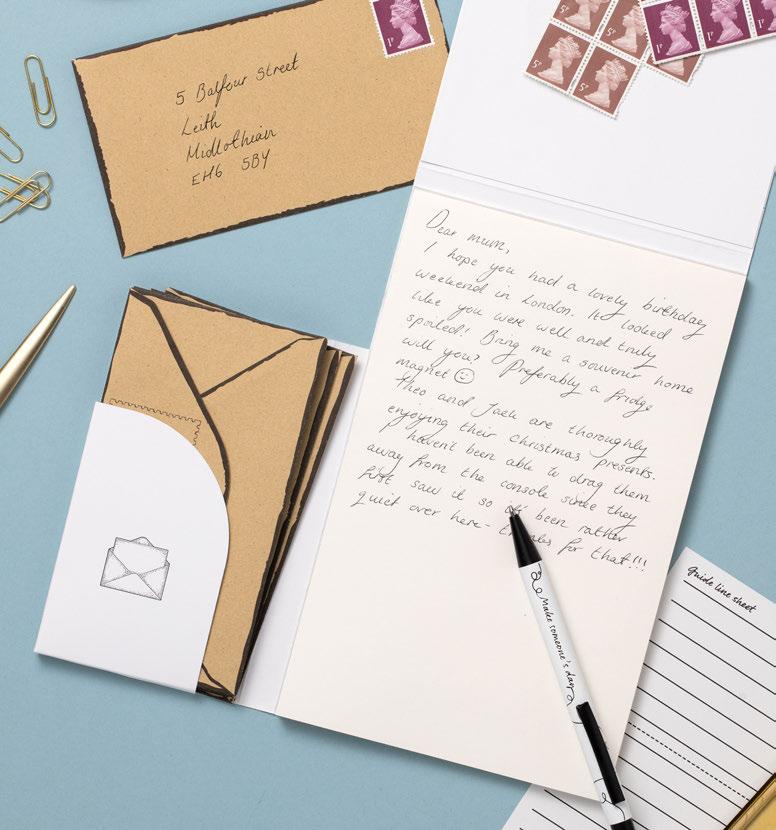 5 Balfour Street
Leith
Midlothian
EH6 5BY
1P
5P
5P
1P
Dear mum,
I hope you had a lovely birthday
weekend in London. It looked
like you were well and truly
spoiled! Bring me a souvenir home
will you? Preferably a fridge
magnet
Theo and Jack are thoroughly
enjoying their Christmas presents.
I haven't been able to drag them
away from the console since they
first saw it so it's been rather
quiet over here - thanks for that!!!
Make someone's day
guide line sheet